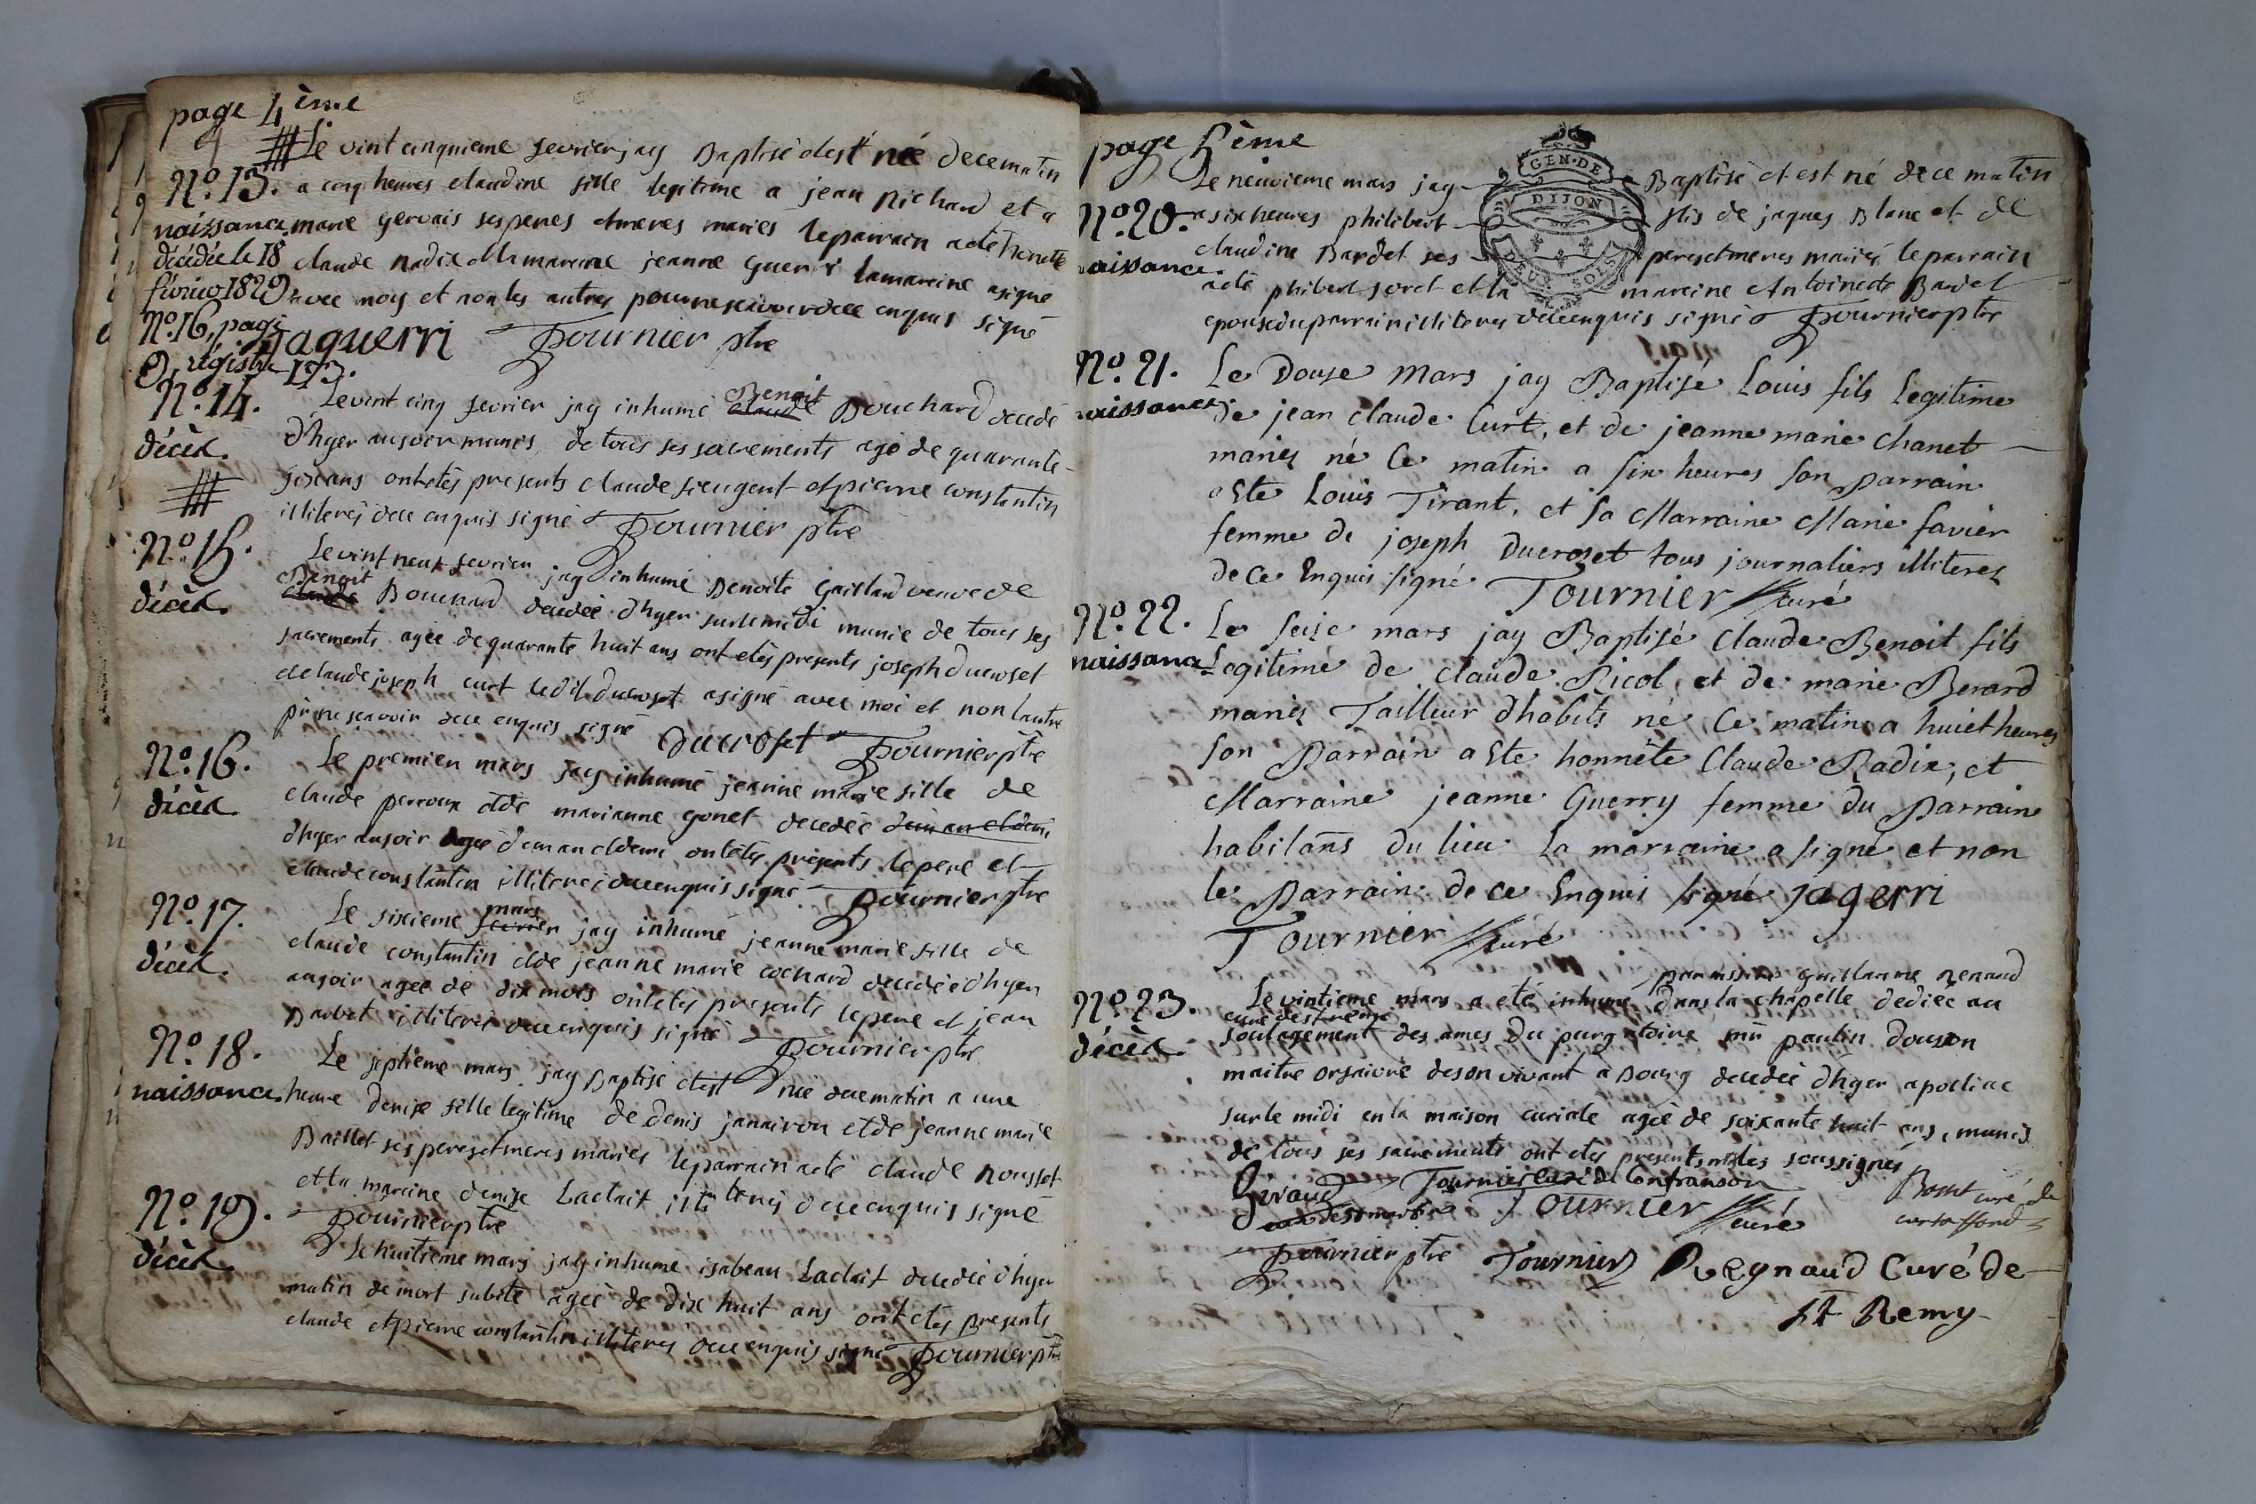 page 4 ème
Le vint cinquieme fevrier jay Baptisé et est née dece matin
N.º 13. a cinq heures claudine fille legitime a jean Richard et a
naissance marie gervais ses peres et meres mariés le parrain a eté honette
décédée le 18 claude Radix et la mareine jeanne Guerri la mareine a signé
février 1829 avec moy et non les autres pour ne scavoir de ce enquis signé
N.º 16, page jaguerri Fournier ptre
régistre
N.º 14. Le vint cinq fevrier jay inhumé claude Benoit Bouchard decedé
décès. d'hyer au soir munis de tous ses sacrements agé de quarante
six ans ont etés presents claude pieugent et pierre constantin
illiterés de ce enquis signé Fournier ptre
N.º 15. Le vint neuf fevrier jay inhumé Benoite Gaillard veuve de
décès. claude Benoit Bouchard decedée d'hyer sur le midi munie de tous ses
sacrements agée de quarante huit ans ont etés presents joseph Ducroset
et claude joseph curt ledit Ducroset a signé avec moi et non l'autre
pr ne scavoir de ce enquis signé Ducroset Fournier ptre
N.º 16. Le premier mars jay inhumé jeanne marie fille de
décès. claude perroux et de marianne gonet decedée d'un an et demi
d'hyer au soir agée d'un an et demi ont etés presents le pere et
claude constantin illiterés de ce enquis signé Fournier ptre
N.º 17. Le sixieme fevrier mars jay inhumé jeanne marie fille de
décès. claude constantin et de jeanne marie cochard decedée d'hyer
au soir agée de dix mois ont etés presents le pere et jean
Barbet illiterés de ce enquis signé Fournier ptre
N.º 18. Le septieme mars jay Baptisé et est née de ce matin a une
naissance. heure denise fille legitime de denis janaivon et de jeanne marie
Baillet ses peres et meres mariés le parrain a eté claude Rousset
et la mareine denise Laclait illiterés de ce enquis signé
N.º 19. Fournier ptre
Le huitieme mars jay inhumé isabeau Laclait decedée d'hyer
décès. matin de mort subite agée de dix huit ans ont etés presents
claude et pierre constantin illiterés de ce enquis signé Fournier ptre
page 5 ème
GEN · DE
DIJON
DEUX SOLS
Le neuvieme mars jay Baptisé et est né de ce matin
N.º 20. a six heures philibert fils de jaques Blanc et de
naissance. claudine Bardet ses peres et meres mariés le parrain
a eté philibert joret et la mareine Antoinette Badet
epouse du parrain illiterés de ce enquis signé Fournier ptre
N.º 21. Le Douse Mars jay Baptisé Louis fils Legitime
naissance de jean claude Curt, et de jeanne marie Chanet
mariés né ce matin a six heures son Parrain
a Ete Louis Tirant, et sa Marraine Marie favier
femme de joseph Ducroset tous journaliers illiterés
de ce Enquis signé Tournier curé
N.º 22. Le seise mars jay Baptisé Claude Benoit fils
naissance Legitime de Claude Picol et de marie Berard
mariés Tailleur d'habits né ce matin a huiet heures
son Parrain a Ete honnête Claude Radix, et
Marraine jeanne Guerry femme du Parrain
habitans du lieu la marraine a signé et non
le Parrain de ce Enquis signé jagerri
Tournier curé
par messire guillaume Renaud
N.º 23. Le vintieme mars a eté inhumé dans la chapelle dediée au
curé de st remy
décès. soulagement des ames du purgatoire paulin
maitre orfaivre de son vivant a Bourg decedée d'hyer
sur le midi en la maison curiale agée de soixante huit ans, munis
de tous ses sacrements ont etés presents soussignés
Tournier curé de Confranson Tournier curé curé de
curtaffond
Fournier ptre Tournier Regnaud Curé de
St Remy